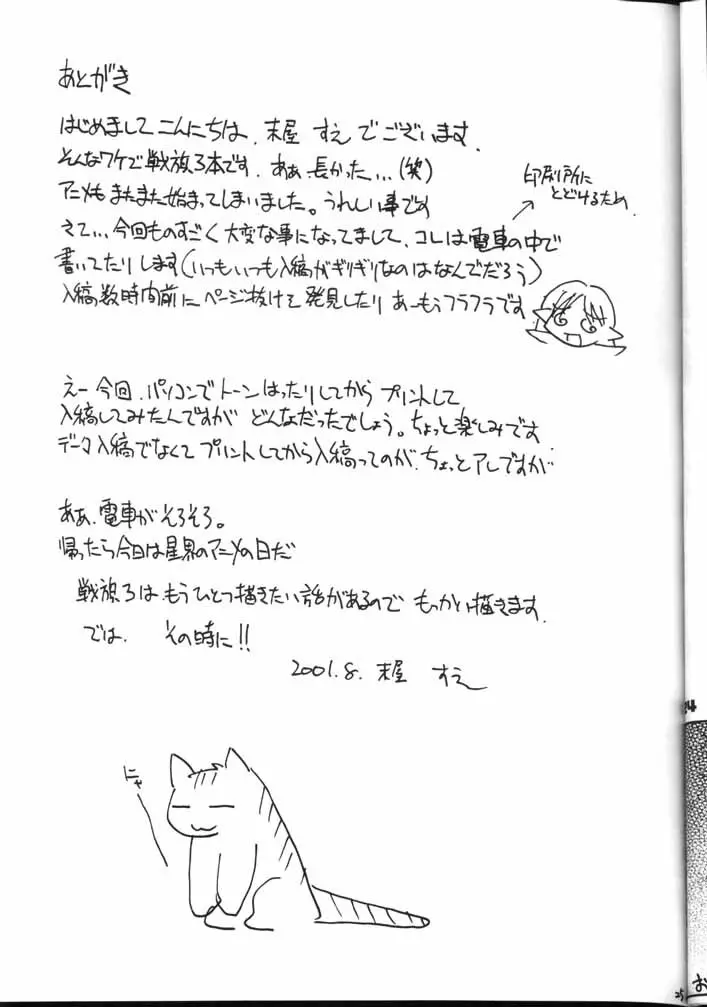 あとがき
はじめまして こんにちは、末屋 すえ でございます.
そんなワケで戦旗3本です. あぁ 長かった…(笑)
アニメも またまた始まってしまいました。うれしい事です
さて… 今回ものすごく 大変な事になってまして、コレは電車の中で
書いてたりします(いつもいつも入稿がギリギリなのはなんでだろう)
入稿数時間前に ページ抜けを発見したり あーもうフラフラです
印刷所に
とどけるため.
えー 今回、パソコンで トーン はったりしてから プリントして
入稿してみたんですが どんなだったでしょう。ちょっと楽しみです
データ入稿でなくて プリントしてから入稿ってのが、ちょっとアレですが
あぁ、電車がそろそろ。
帰ったら今日は星界のアニメの日だ
戦旗3は もうひとつ描きたい話があるので もっかい描きます.
では、 その時に!!
2001.8. 末屋 すえ
にゃ
24
25
お